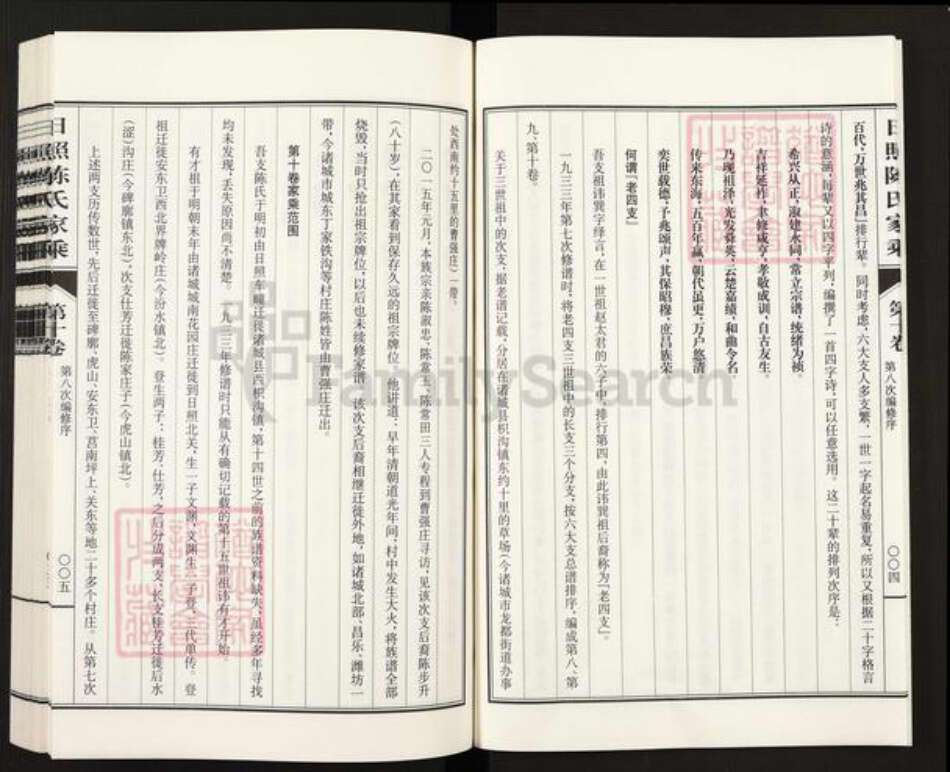 日照陈氏家乘
第十卷
第八次编修序
〇〇四
百代;万世兆其昌』排行辈。同时考虑,六大支人多支繁,一世一字起名易重复,所以又根据二十字格言
诗的意涵,每辈又以四字平列,编撰了一首四字诗,可以任意选用。这二十辈的排列次序是:
希兴从正,淑建永同,常立宗谱,统绪为祯。
吉祥延祚,聿修成亨,孝敬成训,自古友生。
乃现祖泽,光发舜英,云楚嘉绩,和曲令名。
传来东海,五百年赢,朝代虽更,万户悠清
奕世载德,予兆颂声,其保昭穆,庶昌族荣
何谓『老四支』
吾支祖讳巽字绎言,在一世祖赵太君的六子中,排行第四,由此讳巽祖后裔称为『老四支』。
一九三三年第七次修谱时,将老四支三世祖中的长支三个分支,按六大支总谱排序,编成第八、第
九、第十卷。
关于三世祖中的次支,据老谱记载,分居在诸城县枳沟镇东约十里的草场(今诸城市龙都街道办事
处西南约十五里的曹强庄)一带。
二〇一五年元月,本族宗亲陈淑忠、陈常玉、陈常田三人专程到曹强庄寻访,见该次支后裔陈步升
(八十岁),在其家看到保存久远的祖宗牌位。他讲道:早年清朝道光年间,村中发生大火,将族谱全部
烧毁,当时只抢出祖宗牌位,以后也未续修家谱。该次支后裔相继迁徙外地,如诸城北部、昌乐、潍坊一
带,今诸城市城东丁家铁沟等村庄陈姓皆由曹强庄迁出。
第十卷家乘范围
吾支陈氏于明初由日照车疃迁徙诸城县西枳沟镇,第十四世之前的族谱资料缺失,虽经多年寻找
均未发现,丢失原因尚不清楚。一九三三年修谱时只能从有确切记载的第十五世祖讳有才开始。
有才祖于明朝末年由诸城城南花园庄迁徙到日照北关,生一子文渊,文渊生一子登,三代单传。登
祖迁徙安东卫西北界牌岭庄(今汾水镇北)。登生两子:桂芳、仕芳,之后分成两支,长支桂芳迁徙后水
(涩)沟庄(今碑廓镇东北),次支仕芳迁徙陈家庄子(今虎山镇北)。
上述两支历传数世,先后迁徙至碑廓、虎山、安东卫、莒南坪上、关东等地二十多个村庄。从第七次
日照陈氏家乘
第十卷
第八次编修序
〇〇五
FamilySearch